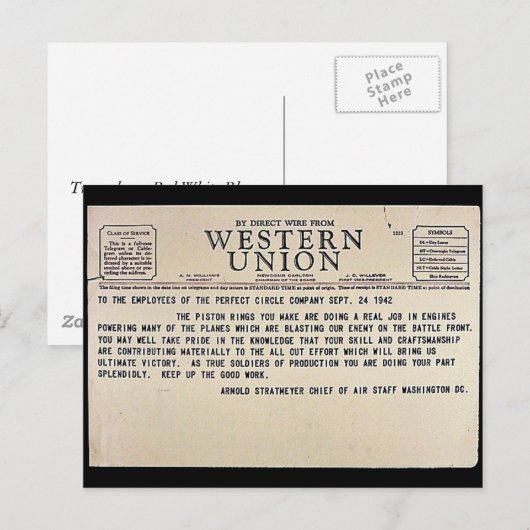 Place
Stamp
Here
BY DIRECT WIRE FROM
WESTERN
UNION
1223
CLASS OF SERVICE
This is a full-rate
Telegram or Cable-
gram unless its de-
ferred character is in-
dicated by a suitable
symbol above or pre-
ceding the address.
A. N. WILLIAMS
PRESIDENT
NEWCOMB CARLTON
CHAIRMAN OF THE BOARD
J. C. WILLEVER
FIRST VICE-PRESIDENT
SYMBOLS
DL = Day Letter
NT = Overnight Telegram
LC = Deferred Cable
NLT = Cable Night Letter
Ship Radiogram
The filing time shown in the date line on telegrams and day letters is STANDARD TIME at point of origin. Time of receipt is STANDARD TIME at point of destination
TO THE EMPLOYEES OF THE PERFECT CIRCLE COMPANY SEPT. 24 1942
THE PISTON RINGS YOU MAKE ARE DOING A REAL JOB IN ENGINES
POWERING MANY OF THE PLANES WHICH ARE BLASTING OUR ENEMY ON THE BATTLE FRONT.
YOU MAY WELL TAKE PRIDE IN THE KNOWLEDGE THAT YOUR SKILL AND CRAFTSMANSHIP
ARE CONTRIBUTING MATERIALLY TO THE ALL OUT EFFORT WHICH WILL BRING US
ULTIMATE VICTORY. AS TRUE SOLDIERS OF PRODUCTION YOU ARE DOING YOUR PART
SPLENDIDLY. KEEP UP THE GOOD WORK.
ARNOLD STRATMEYER CHIEF OF AIR STAFF WASHINGTON DC.